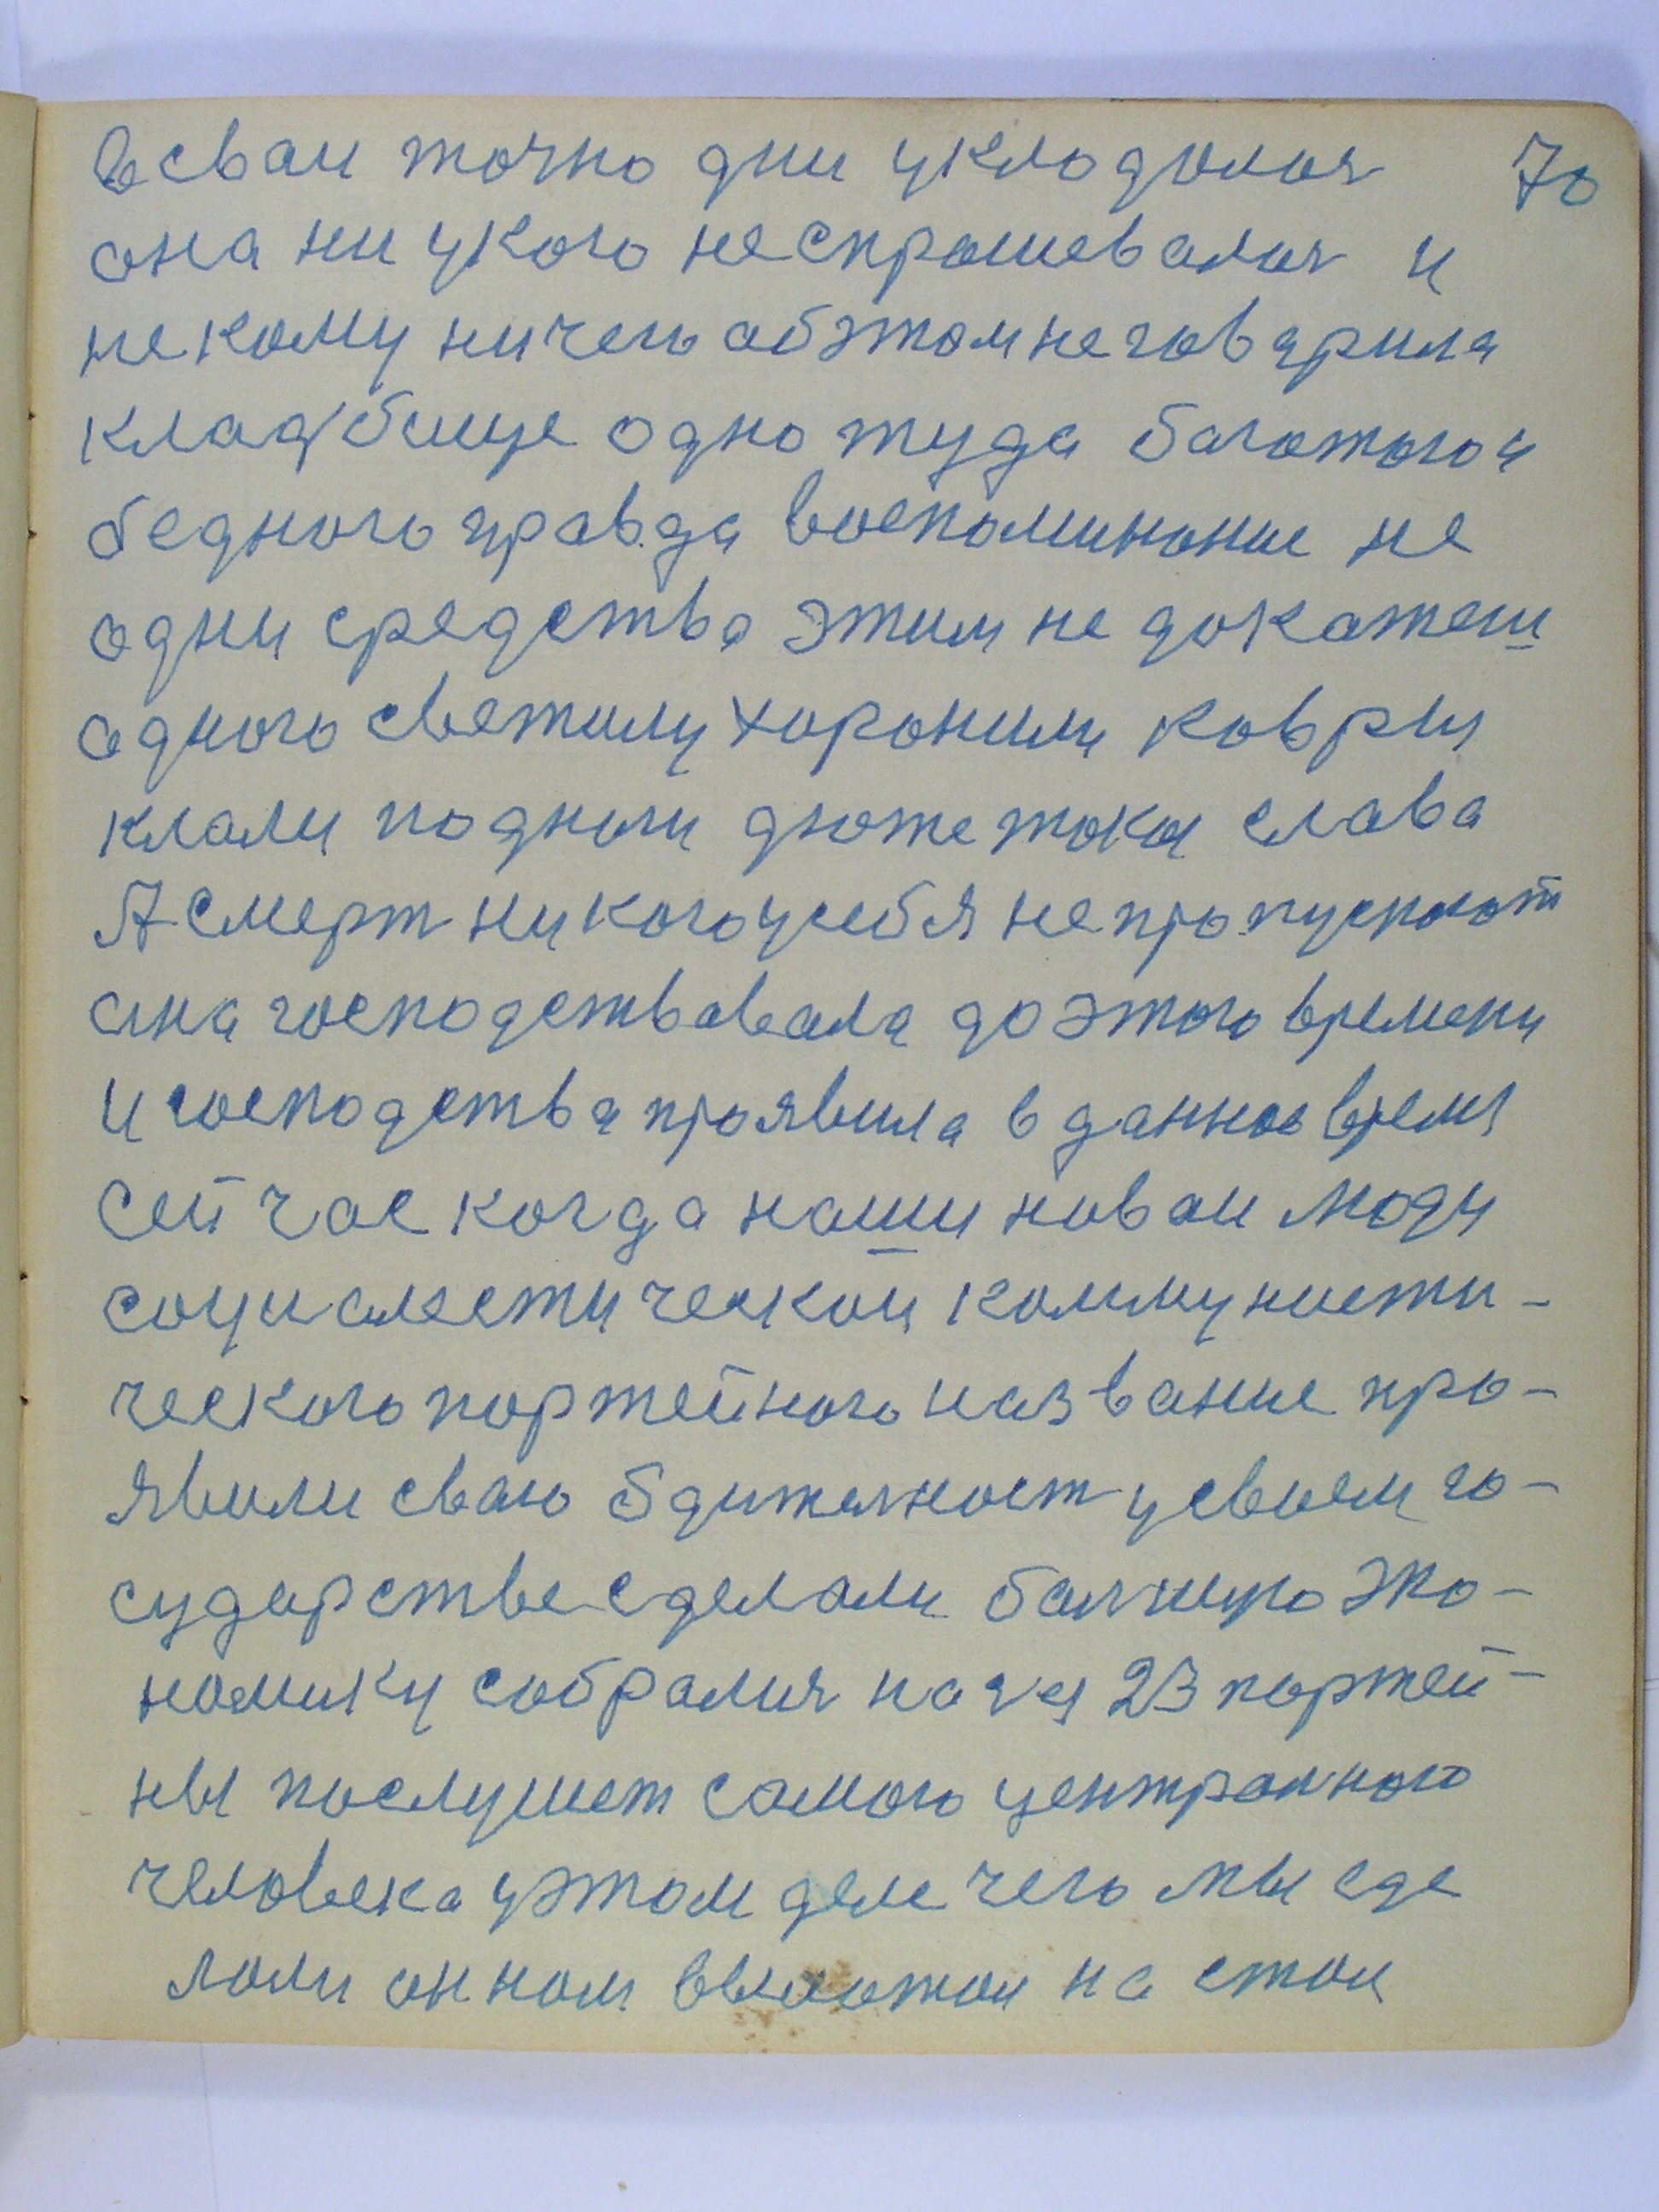 всваи точно дни укладалася 70
она ни укого неспрашевалася и
некому ничего обэтом не говарила
кладбище одно туда богатого и
бедного правда воспоминание не
одни средства этим не докажеш
одного светилу хоронили ковры
клали под ноги даже така слава
А смерт никого усебя не пропускают
она господствовала до этого времени
и господства проявила в данное время
Сейчас когда наши новаи люди
социалестической коммунисти-
ческого портейного название про-
явили сваю бдителность усвоем го-
сударстве сделали балшую эко-
номику собралися на 23 портей-
ны послушат самого централного
человека уэтом деле чего мы сде
лали он нам выложил на стол